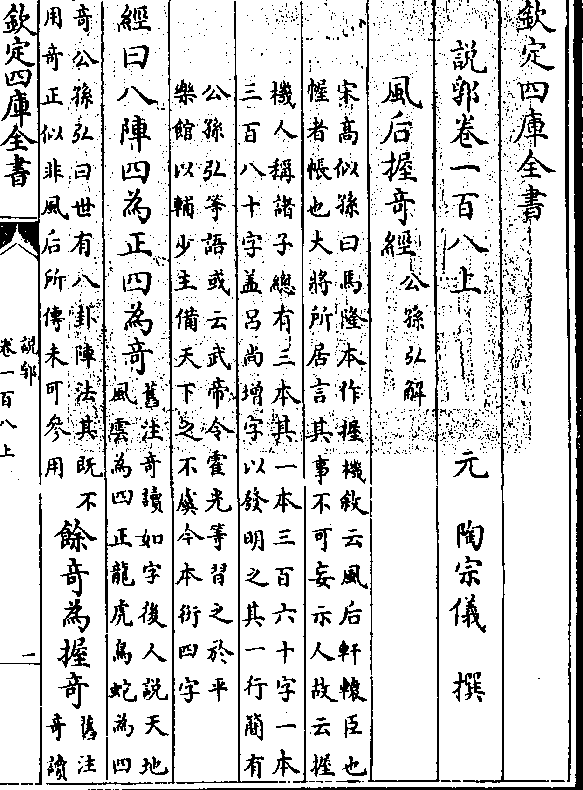 欽定四庫全書
説郛卷一百八上 元 陶宗儀 撰
風后握奇經 公孫弘解
宋髙似孫曰馬隆本作握機敘云風后軒轅臣也
幄者帳也大將所居言其事不可妄示人故云握
機人稱諸子總有三本其一本三百六十字一本
三百八十字盖吕尚增字以發明之其一行簡有
公孫弘等語或云武帝令霍光等習之於平
樂館以輔少主備天下之不虞今本衍四字
經曰八陣四為正四為奇
舊注奇讀如字後人説天地
風雲為四正龍虎鳥蛇為四
奇公孫弘曰世有八卦陣法其既不
用奇正似非風后所傳未可參用
餘奇為握奇
舊注
奇讀
欽定四庫全書
説郛
卷一百八上
一